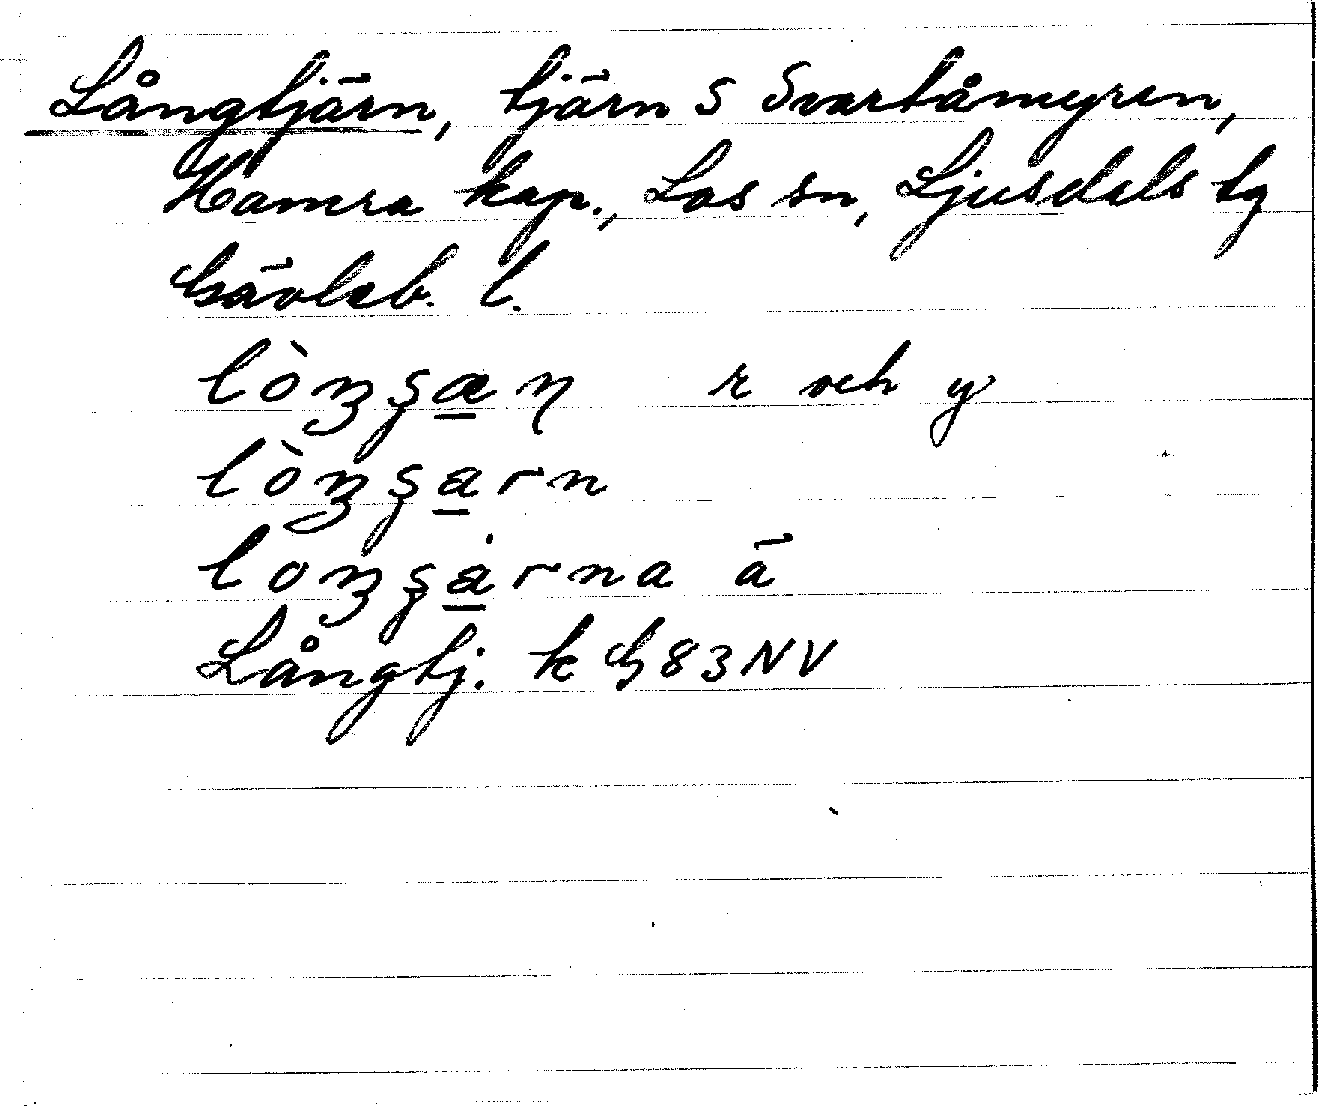 Långtjärn, tjärn S Svartåmyren,
Hamra kap., Los sn, Ljusdals tg
Gävleb. l.
lòŋʂæɳ r och y
lòŋʂarn
loŋʂarna ä
Långtj. k G83NV